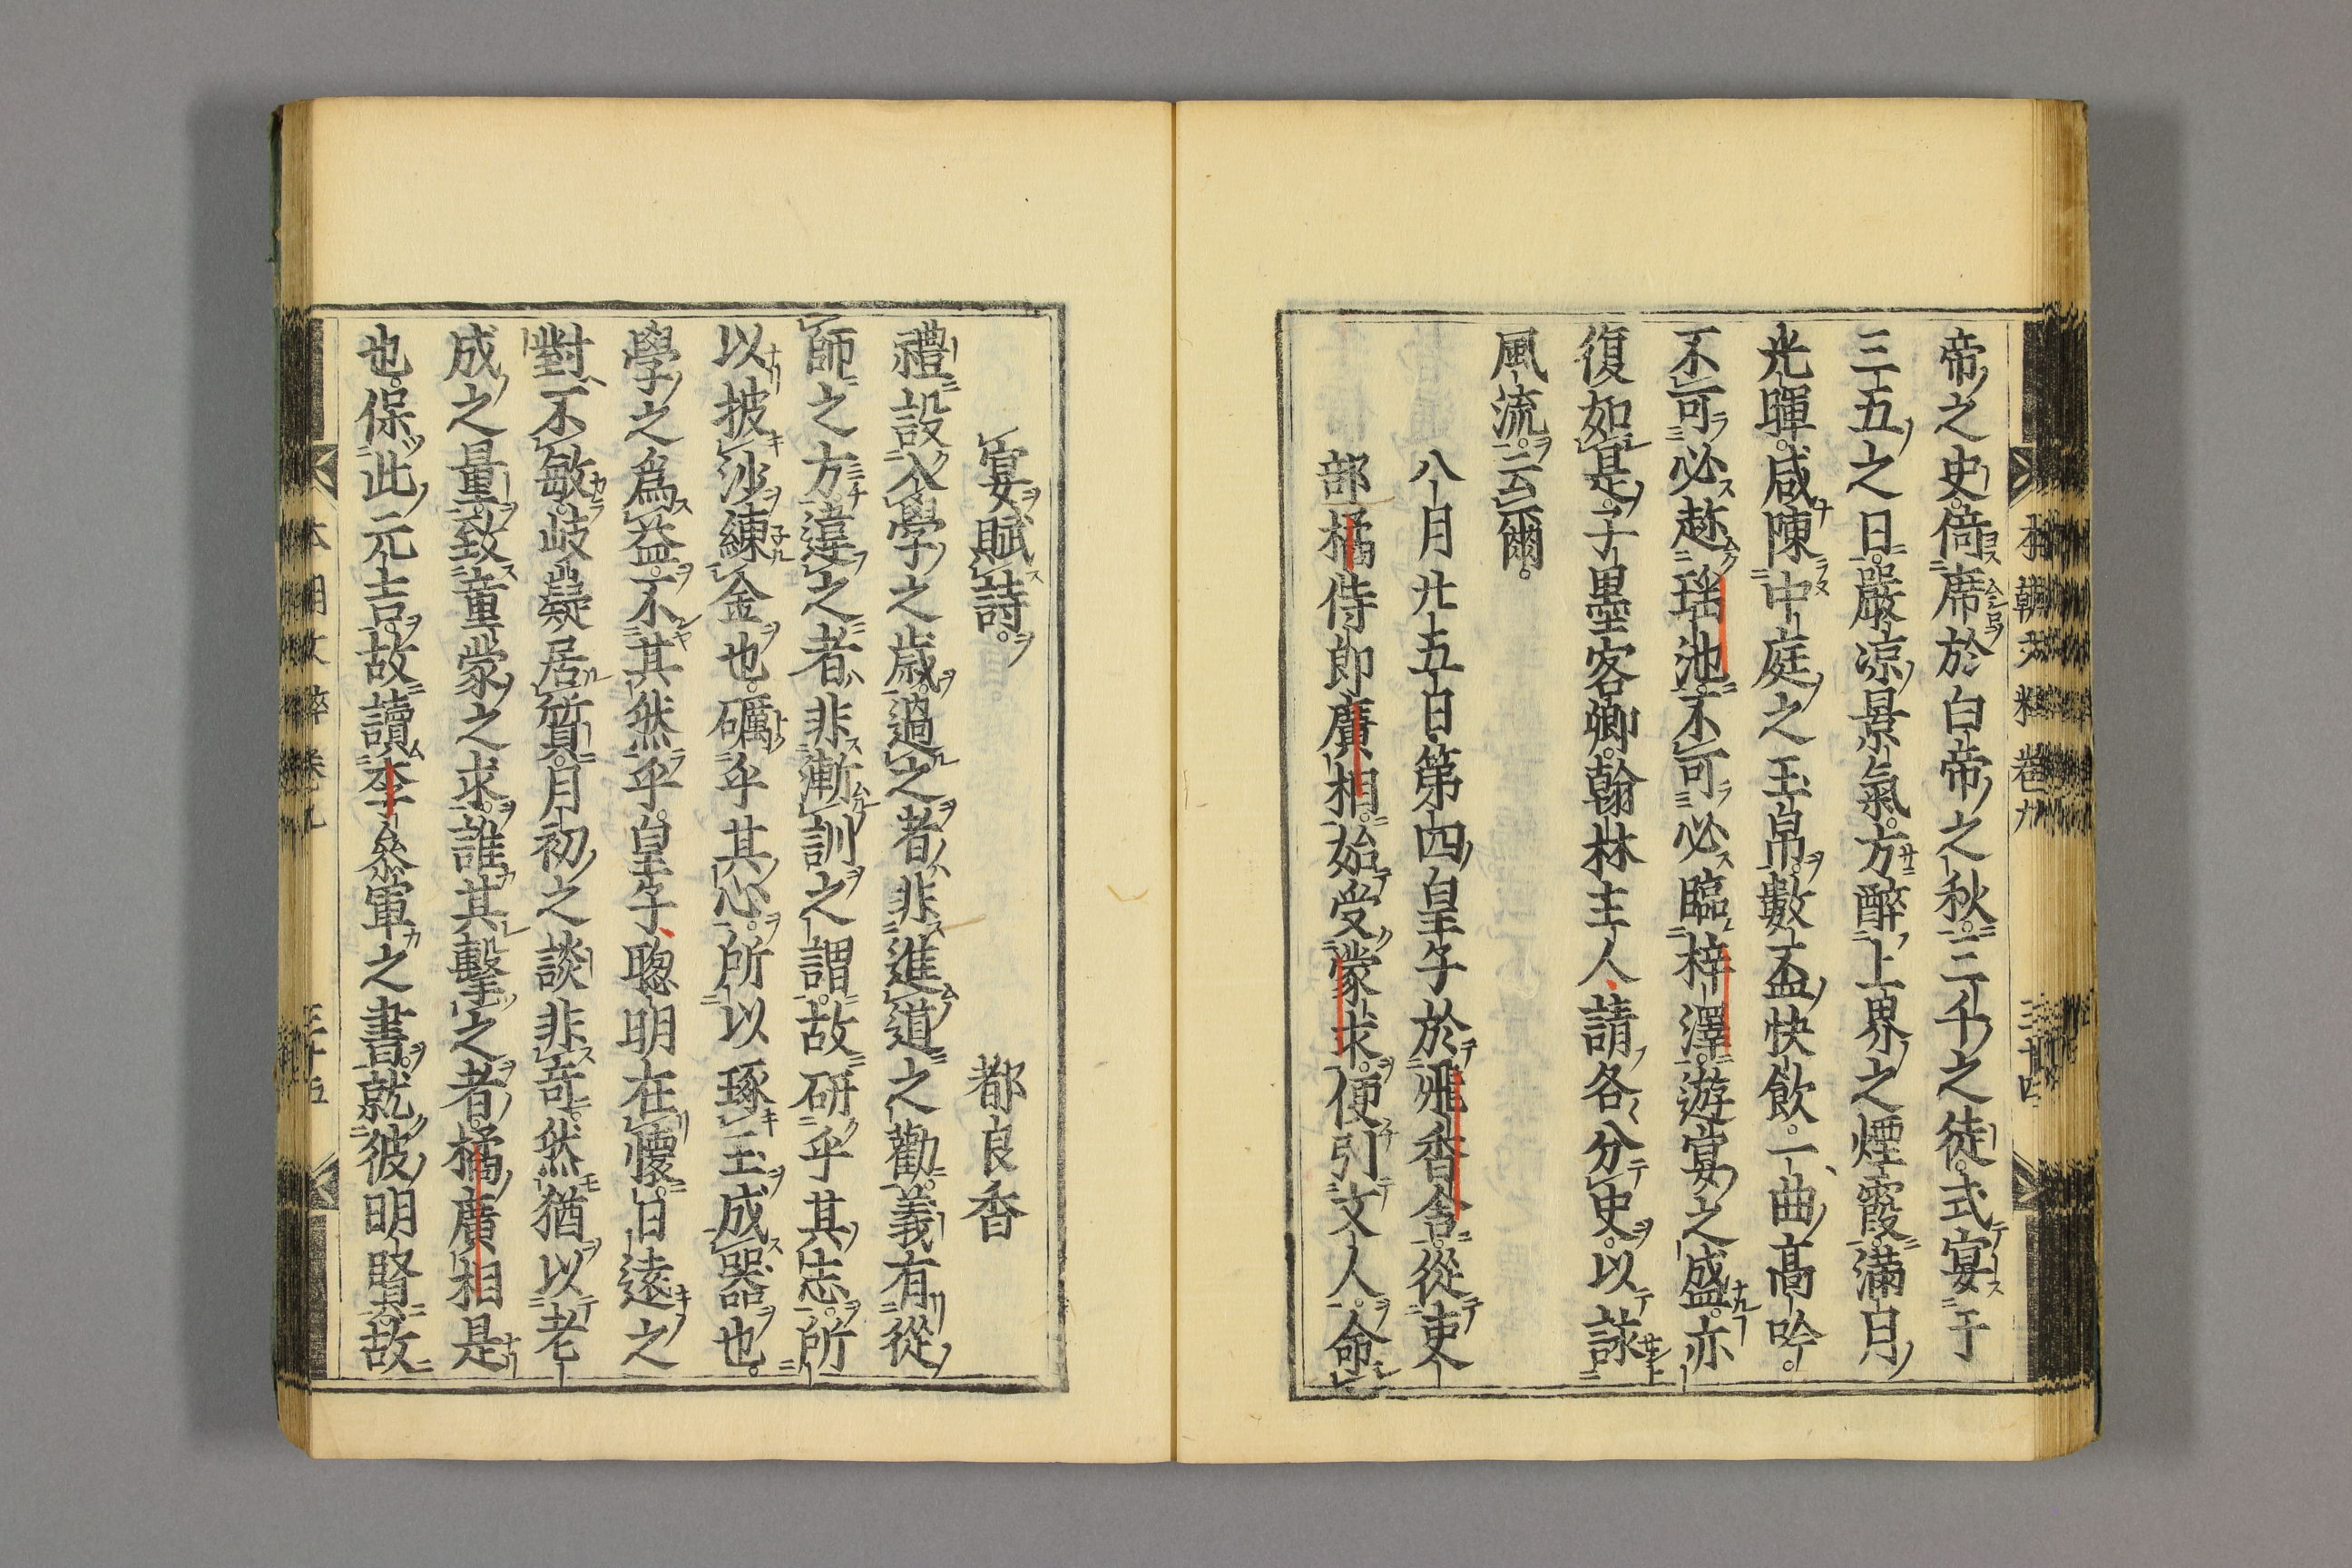 帝之史倚席於白帝之秋三千之徒式宴于
三五之日嚴凉景氣方醉上界之煙霞滿月
光暉咸陳中庭之玉帛數盃快飲一曲高吟
不可必趂瑤池不可必臨梓澤遊宴之盛亦
復如是子墨客卿翰林主人請各分史以詠
風流云爾
八月廿五日第四皇子於飛香舍從吏
部橘侍郎廣相始受蒙求便引文人命
宴賦詩
都良香
禮設入學之歲過之者非進道之勸義有從
師之方違之者非漸訓之謂故研乎其志所
以披沙練金也礪乎其心所以琢玉成器也
學之爲益不其然乎皇子聰明在懷日遠之
對不敏岐嶷居質月初之談非奇然猶以老
成之量致童蒙之求誰其擊之者橘廣相是
也保此元吉故讀李叅軍之書就彼明賢故
本朝文粹卷九
三十四
本朝文粹卷九
三十五